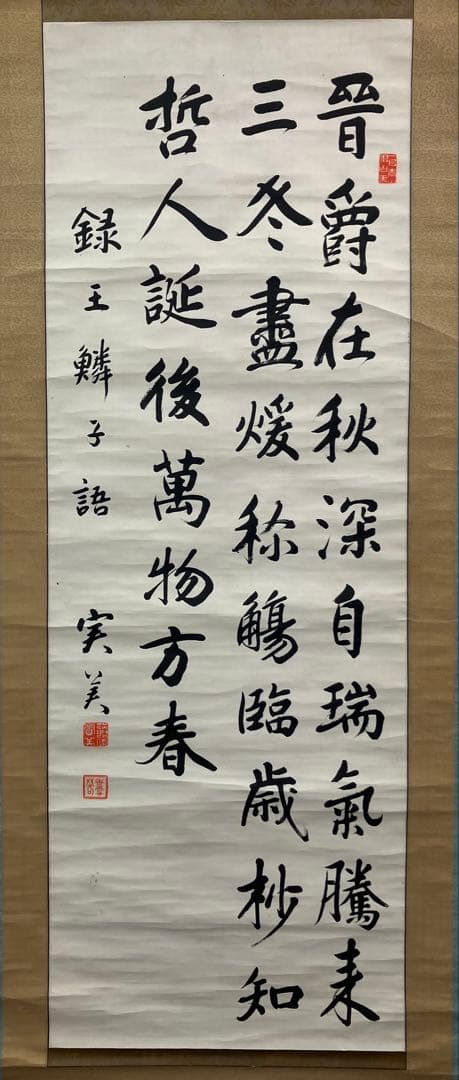 晋爵在秋深自瑞氣騰来
三冬盡煖称觴臨歳杪知
哲人誕後萬物方春
録王鱗子語 実美